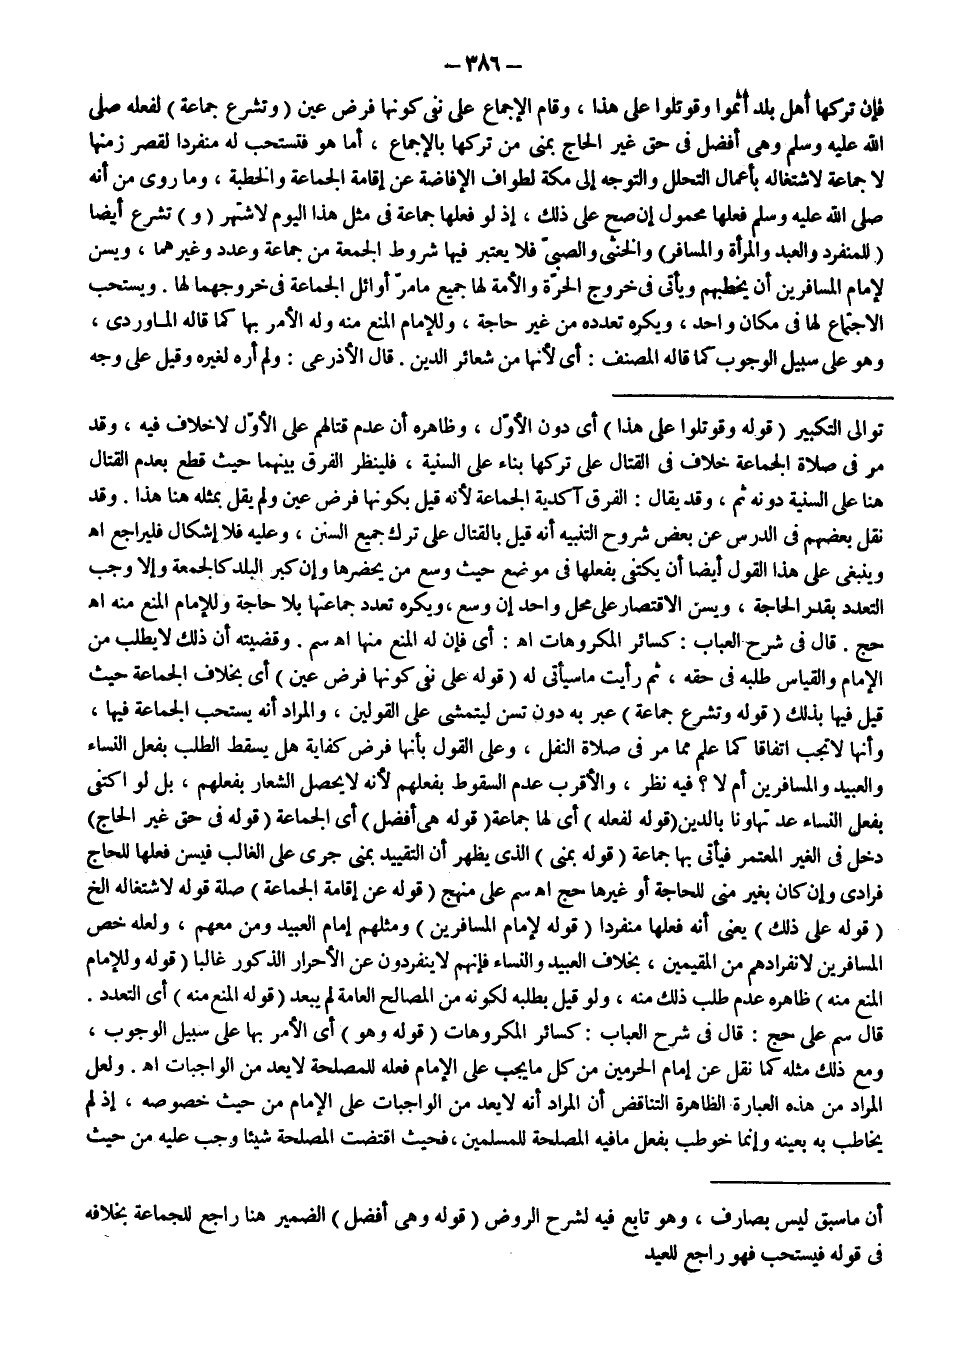 — ٣٨٦ —
فإن تركها أهل بلد أثموا وقوتلوا على هذا ، وقام الإجماع على نفى كونها فرض عين ( وتشرع جماعة ) لفعله صلى
الله عليه وسلم وهى أفضل فى حق غير الحاج بمنى من تركها بالإجماع ، أما هو فتستحب له منفردا لقصر زمنها
لا جماعة لاشتغاله بأعمال التحلل والتوجه إلى مكة لطواف الإفاضة عن إقامة الجماعة والخطبة ، وما روى من أنه
صلى الله عليه وسلم فعلها محمول إن صح على ذلك ، إذ لو فعلها جماعة فى مثل هذا اليوم لاشتهر ( و ) تشرع أيضا
( للمنفرد والعبد والمرأة والمسافر ) والخنثى والصبىّ فلا يعتبر فيها شروط الجمعة من جماعة وعدد وغيرهما ، ويسن
لإمام المسافرين أن يخطبهم ويأتى فى خروج الحرّة والأمة لها جميع مامرّ أوائل الجماعة فى خروجهما لها . ويستحب
الاجتماع لها فى مكان واحد ، ويكره تعدده من غير حاجة ، وللإمام المنع منه وله الأمر بها كما قاله المـاوردى ،
وهو على سبيل الوجوب كما قاله المصنف : أى لأنها من شعائر الدين . قال الأذرعى : ولم أره لغيره وقيل على وجه
توالى التكبير ( قوله وقوتلوا على هذا ) أى دون الأوّل ، وظاهره أن عدم قتالهم على الأوّل لاخلاف فيه ، وقد
مر فى صلاة الجماعة خلاف فى القتال على تركها بناء على السنية ، فلينظر الفرق بينهما حيث قطع بعدم القتال
هنا على السنية دونه ثم ، وقد يقال : الفرق آكدية الجماعة لأنه قيل بكونها فرض عين ولم يقل بمثله هنا هذا . وقد
نقل بعضهم فى الدرس عن بعض شروح التنبيه أنه قيل بالقتال على ترك جميع السنن ، وعليه فلا إشكال فليراجع اه
وينبغى على هذا القول أيضا أن يكتفى بفعلها فى موضع حيث وسع من يحضرها وإن كبر البلد كالجمعة وإلا وجب
التعدد بقدر الحاجة ، ويسن الاقتصار على محل واحد إن وسع ، ويكره تعدد جماعتها بلا حاجة وللإمام المنع منه اه
حج . قال فى شرح العباب : كسائر المكروهات اه : أى فإن له المنع منها اه سم . وقضيته أن ذلك لايطلب من
الإمام والقياس طلبه فى حقه ، ثم رأيت ماسيأتى له ( قوله على نفى كونها فرض عين ) أى بخلاف الجماعة حيث
قيل فيها بذلك ( قوله وتشرع جماعة ) عبر به دون تسن ليتمشى على القولين ، والمراد أنه يستحب الجماعة فيها ،
وأنها لاتجب اتفاقا كما علم مما مر فى صلاة النفل ، وعلى القول بأنها فرض كفاية هل يسقط الطلب بفعل النساء
والعبيد والمسافرين أم لا ؟ فيه نظر ، والأقرب عدم السقوط بفعلهم لأنه لايحصل الشعار بفعلهم ، بل لو اكتفى
بفعل النساء عد تهاونا بالدين ( قوله لفعله ) أى لها جماعة ( قوله هى أفضل ) أى الجماعة ( قوله فى حق غير الحاج )
دخل فى الغير المعتمر فيأتى بها جماعة ( قوله بمنى ) الذى يظهر أن التقييد بمنى جرى على الغالب فيسن فعلها للحاج
فرادى وإن كان بغير منى للحاجة أو غيرها حج اه سم على منهج ( قوله عن إقامة الجماعة ) صلة قوله لاشتغاله الخ
( قوله على ذلك ) يعنى أنه فعلها منفردا ( قوله لإمام المسافرين ) ومثلهم إمام العبيد ومن معهم ، ولعله خص
المسافرين لانفرادهم من المقيمين ، بخلاف العبيد والنساء فإنهم لاينفردون عن الأحرار الذكور غالبا ( قوله وللإمام
المنع منه ) ظاهره عدم طلب ذلك منه ، ولو قيل بطلبه لكونه من المصالح العامة لم يبعد ( قوله المنع منه ) أى التعدد .
قال سم على حج : قال فى شرح العباب : كسائر المكروهات ( قوله وهو ) أى الأمر بها على سبيل الوجوب ،
ومع ذلك مثله كما نقل عن إمام الحرمين من كل مايجب على الإمام فعله للمصلحة لايعد من الواجبات اه . ولعل
المراد من هذه العبارة الظاهرة التناقض أن المراد أنه لايعد من الواجبات على الإمام من حيث خصوصه ، إذ لم
يخاطب به بعينه وإنما خوطب بفعل مافيه المصلحة للمسلمين ، فحيث اقتضت المصلحة شيئا وجب عليه من حيث
أن ماسبق ليس بصارف ، وهو تابع فيه لشرح الروض ( قوله وهى أفضل ) الضمير هنا راجع للجماعة بخلافه
فى قوله فيستحب فهو راجع للعيد